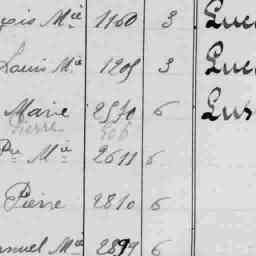 Mie 1160 3 Luc
Louis Mie 1209 3 Luc
Marie 2570 6 Lus
Pierre 506
Pre Mie 2611 6
Pierre 2810 6
Mie 2899 6